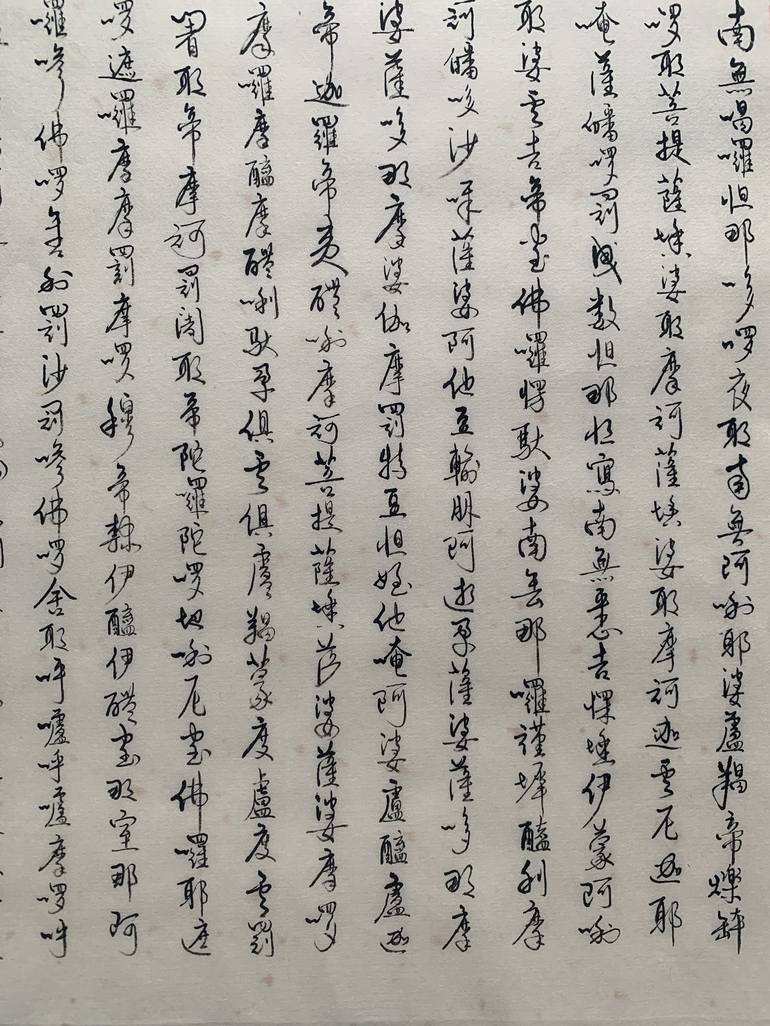 南無喝囉怛那哆囉夜耶南無阿唎耶婆盧羯帝爍缽
囉耶菩提薩埵婆耶摩訶薩埵婆耶摩訶迦盧尼迦耶
唵薩皤囉罰曳數怛那怛寫南無悉吉慄埵伊蒙阿唎
耶婆盧吉帝室佛囉愣馱婆南無那囉謹墀醯利摩
訶皤哆沙咩薩婆阿他豆輸朋阿逝孕薩婆薩哆那摩
婆薩哆那摩婆伽摩罰特豆怛姪他唵阿婆盧醯盧迦
帝迦羅帝夷醯唎摩訶菩提薩埵薩婆薩婆摩囉
摩囉摩醯摩醯唎馱孕俱盧俱盧羯蒙度盧度盧罰
闍耶帝摩訶罰闍耶帝陀囉陀囉地唎尼室佛囉耶遮
囉遮囉摩摩罰摩囉穆帝隸伊醯伊醯室那室那阿
囉嘇佛囉舍利罰沙罰嘇佛囉舍耶呼嚧呼嚧摩囉呼